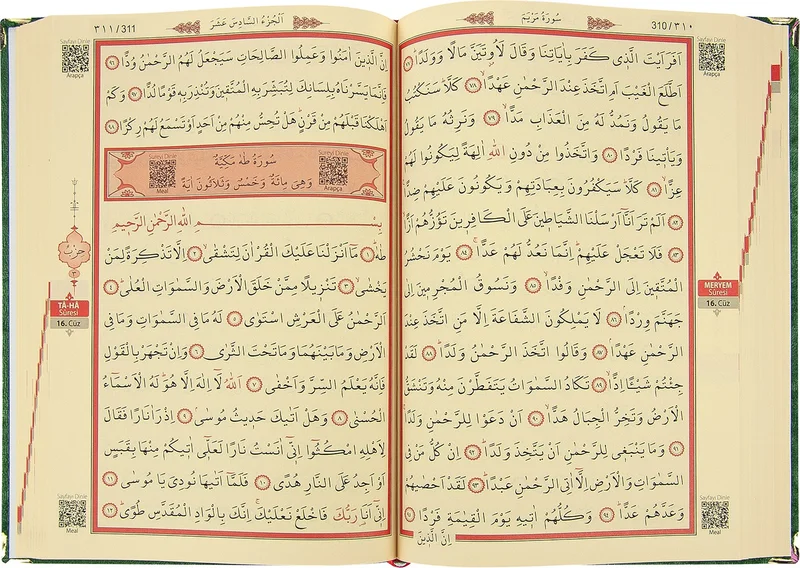 310/٣١٠
سُورَةُ مَرْيَمَ
Sayfayı Dinle
Arapça
اَفَرَاَيْتَ الَّذ۪ي كَفَرَ بِاٰيَاتِنَا وَقَالَ لَاُو۫تَيَنَّ مَالًا وَوَلَدًاۜ ﴿٧٧﴾
اَطَّلَعَ الْغَيْبَ اَمِ اتَّخَذَ عِنْدَ الرَّحْمٰنِ عَهْدًاۙ ﴿٧٨﴾ كَلَّاۜ سَنَكْتُبُ
مَا يَقُولُ وَنَمُدُّ لَهُ مِنَ الْعَذَابِ مَدًّاۙ ﴿٧٩﴾ وَنَرِثُهُ مَا يَقُولُ
وَيَأْت۪ينَا فَرْدًا ﴿٨٠﴾ وَاتَّخَذُوا مِنْ دُونِ اللّٰهِ اٰلِهَةً لِيَكُونُوا لَهُمْ
عِزًّاۙ ﴿٨١﴾ كَلَّاۜ سَيَكْفُرُونَ بِعِبَادَتِهِمْ وَيَكُونُونَ عَلَيْهِمْ ضِدًّا۟
﴿٨٢﴾ اَلَمْ تَرَ اَنَّٓا اَرْسَلْنَا الشَّيَاط۪ينَ عَلَى الْكَافِر۪ينَ تَؤُزُّهُمْ اَزًّاۙ
﴿٨٣﴾ فَلَا تَعْجَلْ عَلَيْهِمْۜ اِنَّمَا نَعُدُّ لَهُمْ عَدًّاۚ ﴿٨٤﴾ يَوْمَ نَحْشُرُ
الْمُتَّق۪ينَ اِلَى الرَّحْمٰنِ وَفْدًاۙ ﴿٨٥﴾ وَنَسُوقُ الْمُجْرِم۪ينَ اِلٰى
جَهَنَّمَ وِرْدًاۢ ﴿٨٦﴾ لَا يَمْلِكُونَ الشَّفَاعَةَ اِلَّا مَنِ اتَّخَذَ عِنْدَ
الرَّحْمٰنِ عَهْدًاۢ ﴿٨٧﴾ وَقَالُوا اتَّخَذَ الرَّحْمٰنُ وَلَدًاۜ ﴿٨٨﴾ لَقَدْ
جِئْتُمْ شَيْـًٔا اِدًّاۙ ﴿٨٩﴾ تَكَادُ السَّمٰوَاتُ يَتَفَطَّرْنَ مِنْهُ وَتَنْشَقُّ
الْاَرْضُ وَتَخِرُّ الْجِبَالُ هَدًّاۙ ﴿٩٠﴾ اَنْ دَعَوْا لِلرَّحْمٰنِ وَلَدًاۚ
﴿٩١﴾ وَمَا يَنْبَغ۪ي لِلرَّحْمٰنِ اَنْ يَتَّخِذَ وَلَدًاۜ ﴿٩٢﴾ اِنْ كُلُّ مَنْ فِي
السَّمٰوَاتِ وَالْاَرْضِ اِلَّٓا اٰتِي الرَّحْمٰنِ عَبْدًاۜ ﴿٩٣﴾ لَقَدْ اَحْصٰيهُمْ
وَعَدَّهُمْ عَدًّاۜ ﴿٩٤﴾ وَكُلُّهُمْ اٰت۪يهِ يَوْمَ الْقِيٰمَةِ فَرْدًا ﴿٩٥﴾
اِنَّ الَّذ۪ينَ
MERYEM
Sûresi
16. Cüz
Sayfayı Dinle
Meal
اَلْجُزْءُ السَّادِسَ عَشَرَ
٣١١/311
Sayfayı Dinle
Arapça
اِنَّ الَّذ۪ينَ اٰمَنُوا وَعَمِلُوا الصَّالِحَاتِ سَيَجْعَلُ لَهُمُ الرَّحْمٰنُ وُدًّا ﴿٩٦﴾
فَاِنَّمَا يَسَّرْنَاهُ بِلِسَانِكَ لِتُبَشِّرَ بِهِ الْمُتَّق۪ينَ وَتُنْذِرَ بِه۪ قَوْمًا لُدًّا ﴿٩٧﴾ وَكَمْ
اَهْلَكْنَا قَبْلَهُمْ مِنْ قَرْنٍۜ هَلْ تُحِسُّ مِنْهُمْ مِنْ اَحَدٍ اَوْ تَسْمَعُ لَهُمْ رِكْزًا ﴿٩٨﴾
سُورَةُ طٰهٰ مَكِّيَّةٌ
وَهِيَ مِائَةٌ وَخَمْسٌ وَثَلَاثُونَ اٰيَةً
Sureyi Dinle
Arapça
Sureyi Dinle
Meal
بِسْــــمِ اللّٰهِ الرَّحْمٰنِ الرَّح۪يمِ
طٰهٰۜ ﴿١﴾ مَٓا اَنْزَلْنَا عَلَيْكَ الْقُرْاٰنَ لِتَشْقٰىۙ ﴿٢﴾ اِلَّا تَذْكِرَةً لِمَنْ
يَخْشٰىۙ ﴿٣﴾ تَنْز۪يلًا مِمَّنْ خَلَقَ الْاَرْضَ وَالسَّمٰوَاتِ الْعُلٰىۜ ﴿٤﴾
اَلرَّحْمٰنُ عَلَى الْعَرْشِ اسْتَوٰى ﴿٥﴾ لَهُ مَا فِي السَّمٰوَاتِ وَمَا فِي
الْاَرْضِ وَمَا بَيْنَهُمَا وَمَا تَحْتَ الثَّرٰى ﴿٦﴾ وَاِنْ تَجْهَرْ بِالْقَوْلِ
فَاِنَّهُ يَعْلَمُ السِّرَّ وَاَخْفٰى ﴿٧﴾ اَللّٰهُ لَٓا اِلٰهَ اِلَّا هُوَۜ لَهُ الْاَسْمَٓاءُ
الْحُسْنٰى ﴿٨﴾ وَهَلْ اَتٰيكَ حَد۪يثُ مُوسٰىۢ ﴿٩﴾ اِذْ رَاٰ نَارًا فَقَالَ
لِاَهْلِهِ امْكُثُٓوا اِنّ۪ٓي اٰنَسْتُ نَارًا لَعَلّ۪ٓي اٰت۪يكُمْ مِنْهَا بِقَبَسٍ
اَوْ اَجِدُ عَلَى النَّارِ هُدًى ﴿١٠﴾ فَلَمَّٓا اَتٰيهَا نُودِيَ يَا مُوسٰى ﴿١١﴾
اِنّ۪ٓي اَنَا۬ رَبُّكَ فَاخْلَعْ نَعْلَيْكَۚ اِنَّكَ بِالْوَادِ الْمُقَدَّسِ طُوًىۜ ﴿١٢﴾
حزب
٣
TÂ-HÂ
Sûresi
16. Cüz
Sayfayı Dinle
Meal